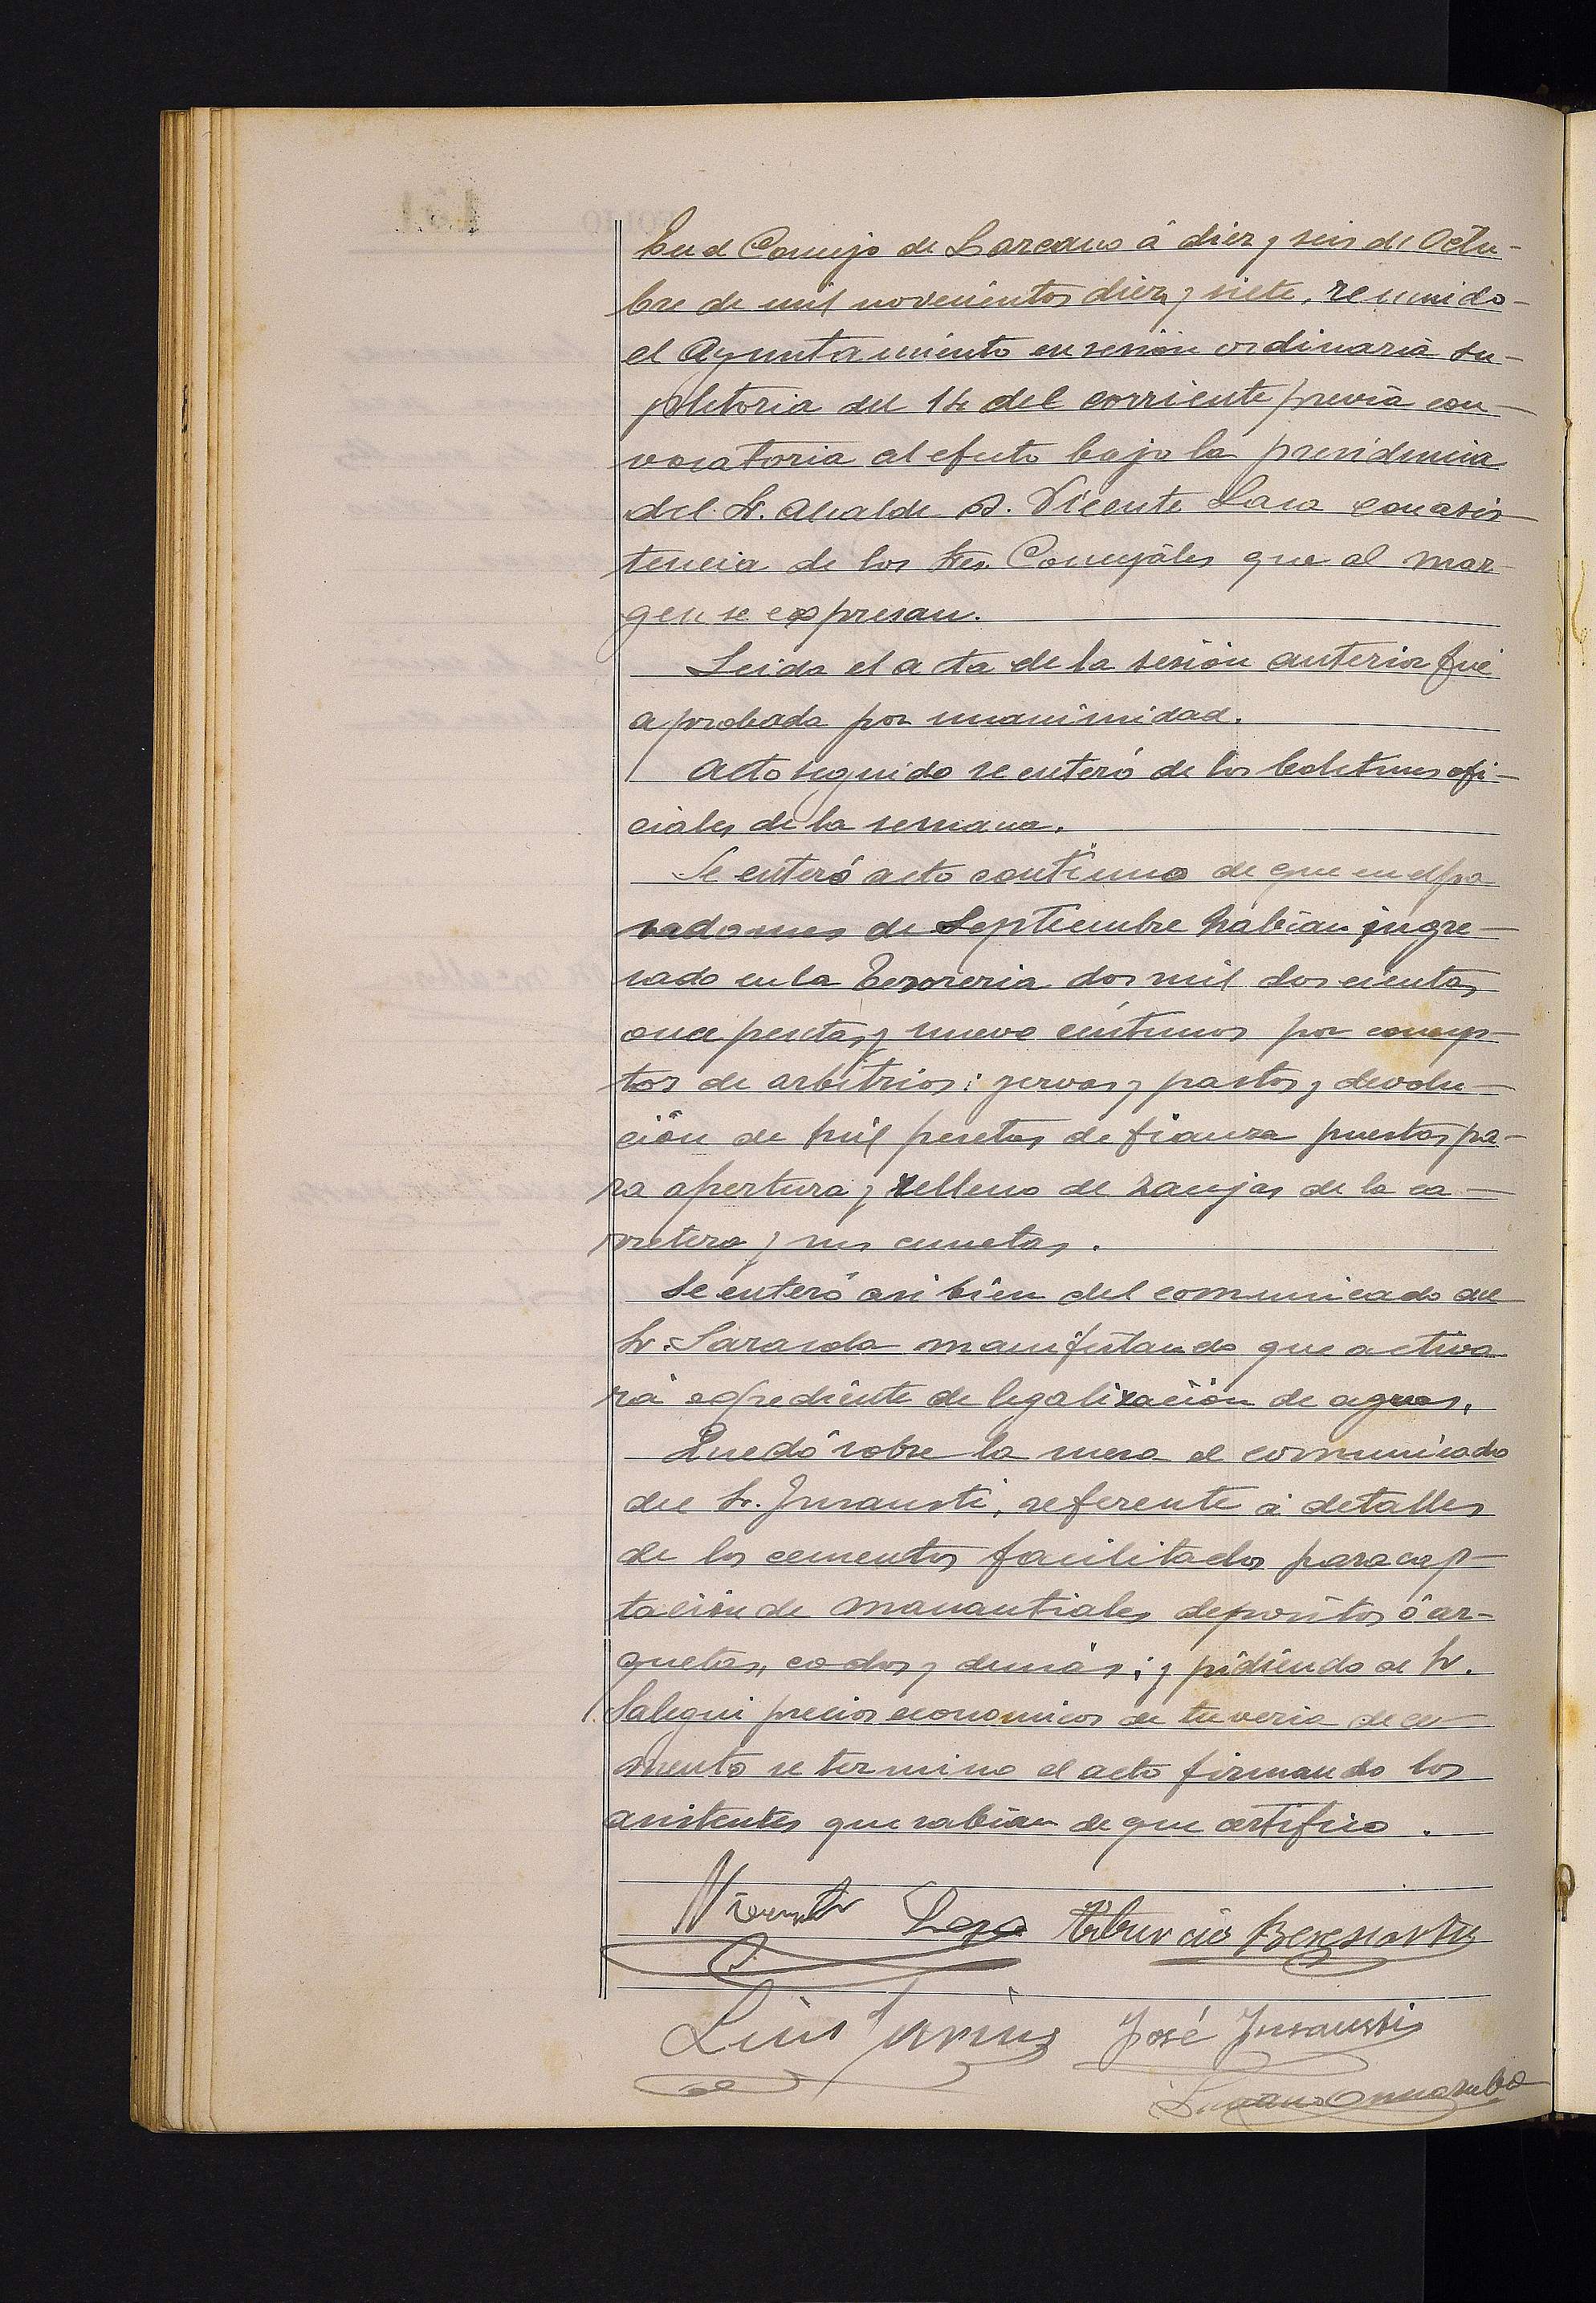 En el Concejo de Lazcano á diez y seis de Octu-
bre de mil novecientos diez y siete, reunido
el Ayuntamiento en sesión ordinaria su-
pletoria del 14 del corriente previa con-
vocatoria al efecto bajo la presidencia
del Sr. Alcalde D. Vicente Lasa con asis
tencia de los Sres. Concejales que al mar-
gen se expresan.
Leida el acta de la sesión anterior fué
aprobada por unanimidad.
Acto seguido se enteró de los boletines ofi-
ciales de la semana.
Se enteró acto continuo de que en el pa
sado mes de Septiembre habian ingre-
sado en la Tesoreria dos mil dos cientas
once pesetas y nueve céntimos por concep-
tos de arbitrios; yervas y pastos y devolu-
ción de mil pesetas de fianza puestas pa-
ra apertura y relleno de zanjas de la ca-
rretera y sus cunetas.
Se enteró asi bien del comunicado del
Sr. Sarasola manifestando que activa
rá expediente de legalización de aguas.
Quedó sobre la mesa el comunicado
del Sr. Insausti, referente á detalles
de los cementos facilitados para cap-
tación de manantiales depositos ó ar-
quetas, codos y demás; y pidiendo al Sr.
Salegui precios economicos de tuveria de ce-
mento se termino el acto firmando los
asistentes que sabian de que certifico.
Vicente Lasa Tiburcio Beresiartu
Luis José Insausti